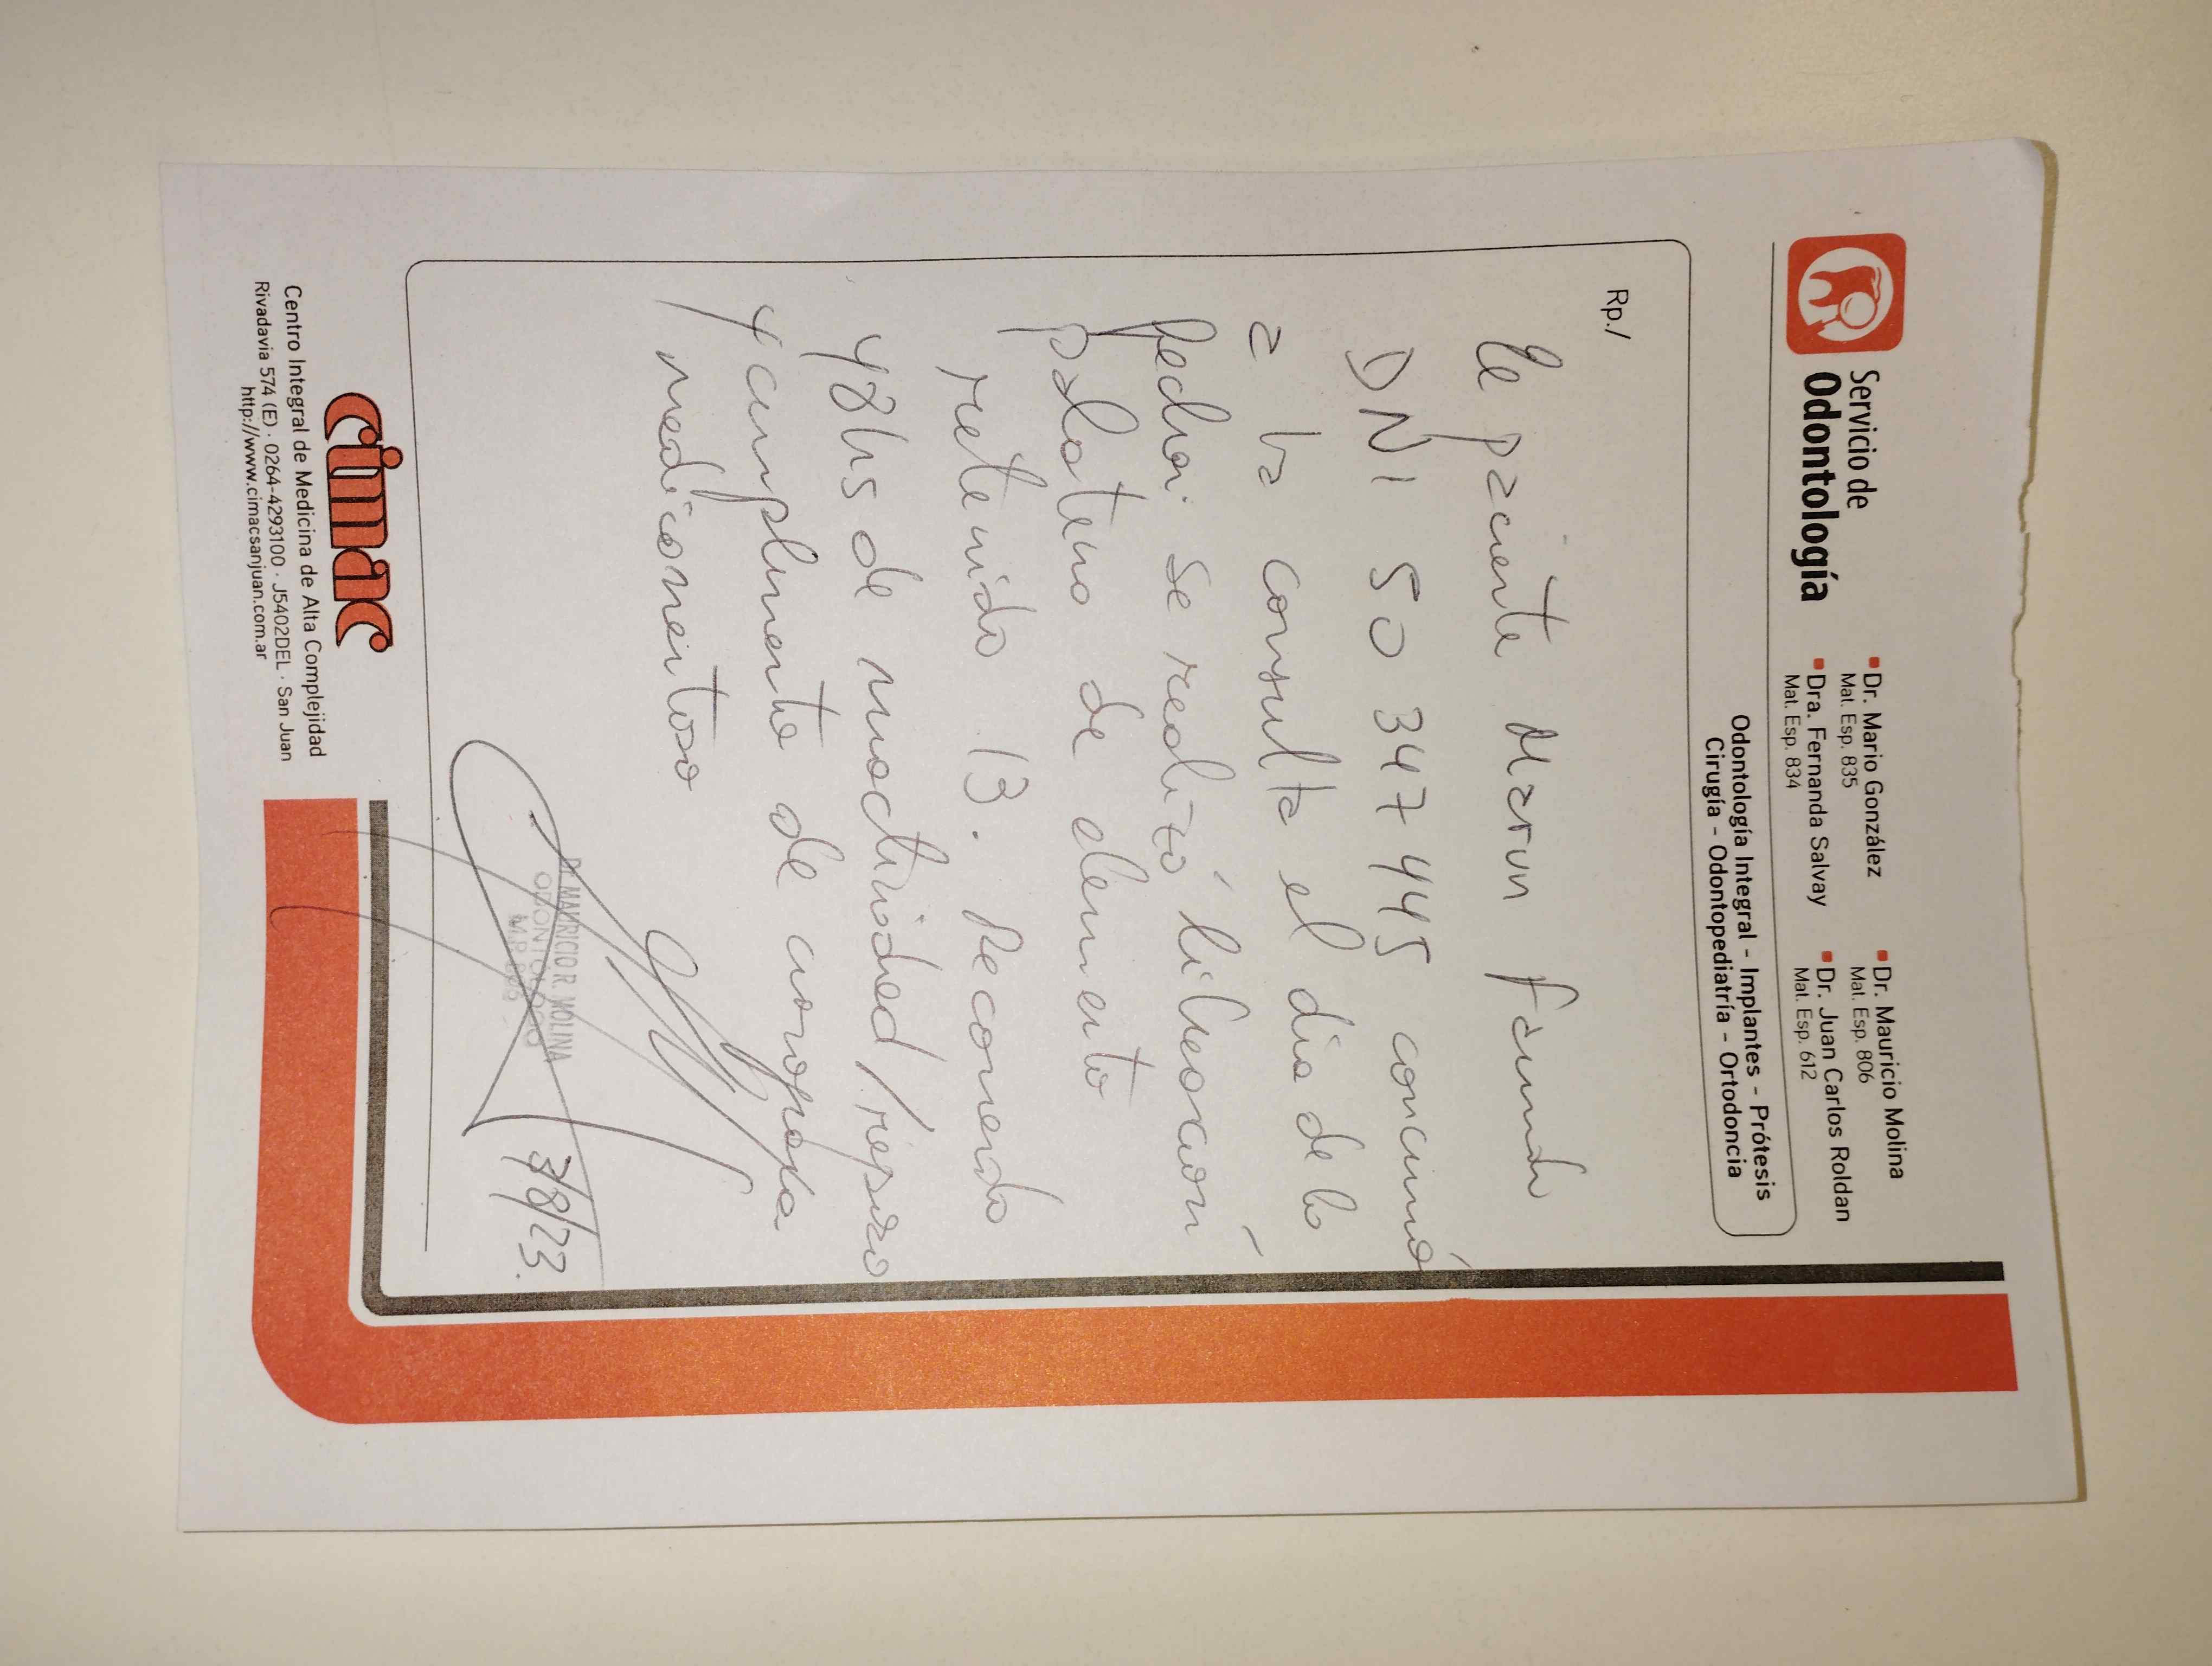 Servicio de
Odontología
Dr. Mario González
Mat. Esp. 835
Dra. Fernanda Salvay
Mat. Esp. 834
Dr. Mauricio Molina
Mat. Esp. 806
Dr. Juan Carlos Roldan
Mat. Esp. 612
Odontología Integral - Implantes - Prótesis
Cirugía - Odontopediatría - Ortodoncia
Rp./
El paciente
DNI 50 347 445 concurrió
a la consulta el día de la
fecha: se realizó liberación
palatino de elemento
retenido 13. Recomiendo
48hs de inactividad/reposo
y cumplimento de
medicamentos
DR. MAURICIO R. MOLINA
ODONTOLOGO
M.P.
3/8/23.
cimac
Centro Integral de Medicina de Alta Complejidad
Rivadavia 574 (E) · 0264-4293100 · J5402DEL · San Juan
http://www.cimacsanjuan.com.ar